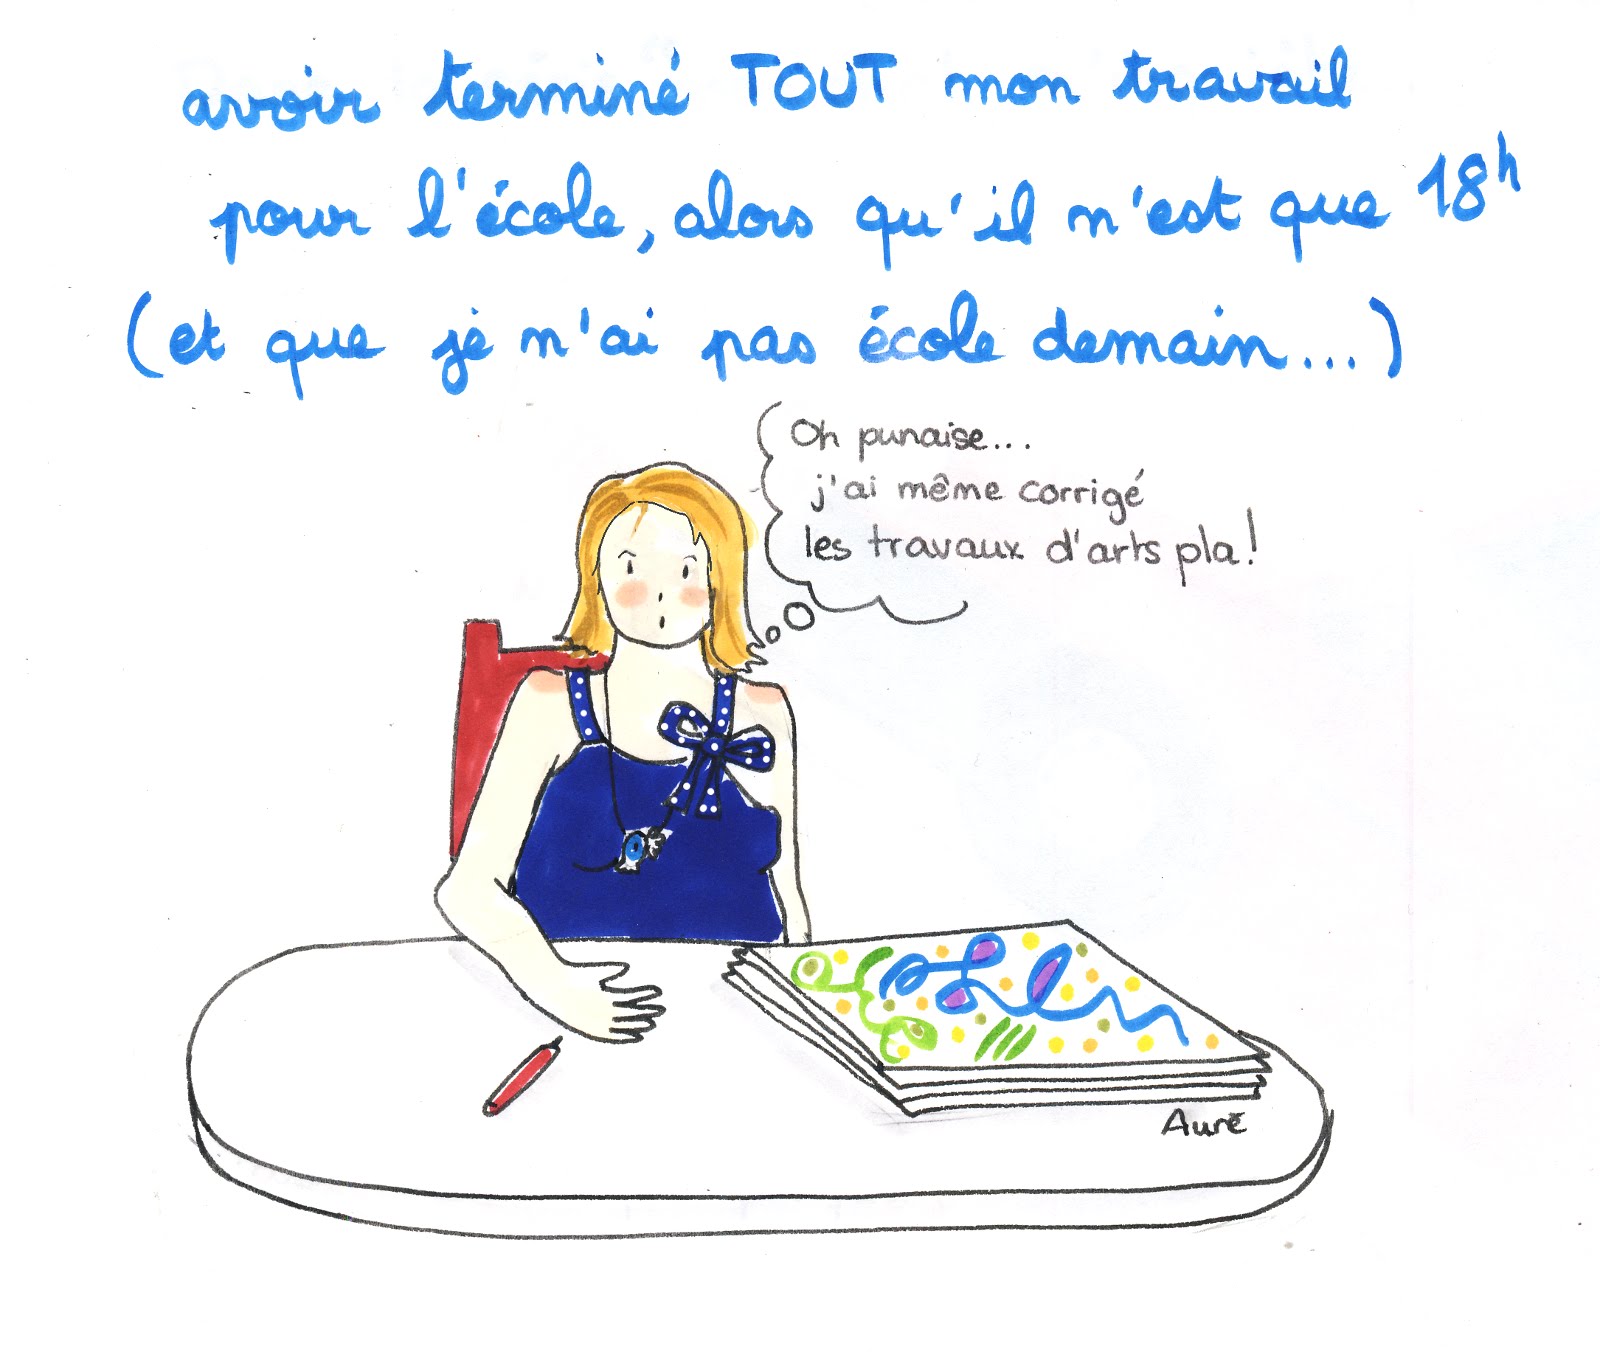 avoir terminé TOUT mon travail
pour l'école, alors qu'il n'est que 18h
(et que je n'ai pas école demain...)
Oh punaise...
j'ai même corrigé
les travaux d'arts pla!
Auré